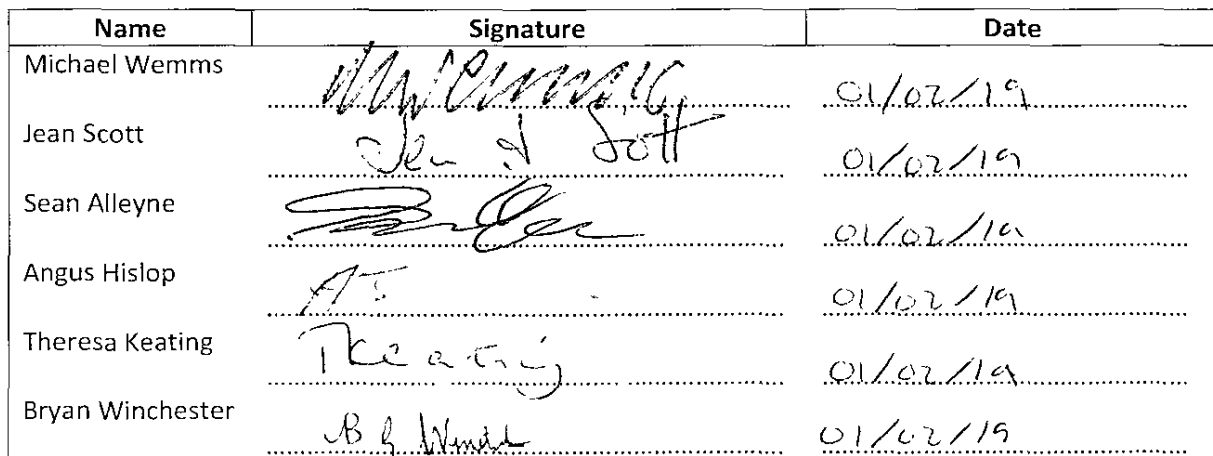 Name Signature Date
Michael Wemms 01/02/19
Jean Scott Jean Scott 01/02/19
Sean Alleyne 01/02/19
Angus Hislop 01/02/19
Theresa Keating TKeating 01/02/19
Bryan Winchester 01/02/19